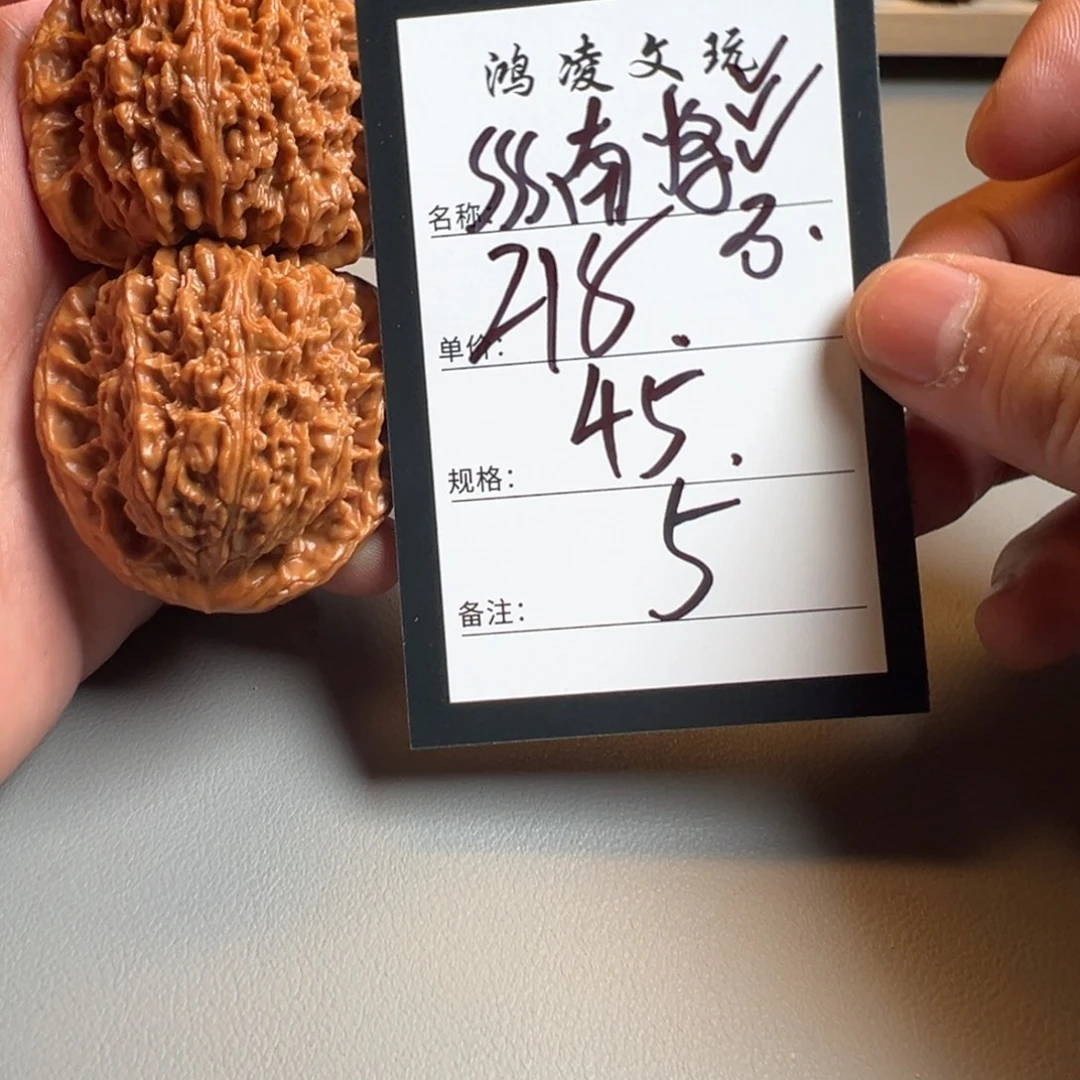 鸿凌文玩
名称: SSS南将石.
单价: 218.
规格: 45.
备注: 5